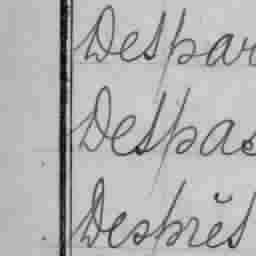 Despar
Despas
Després